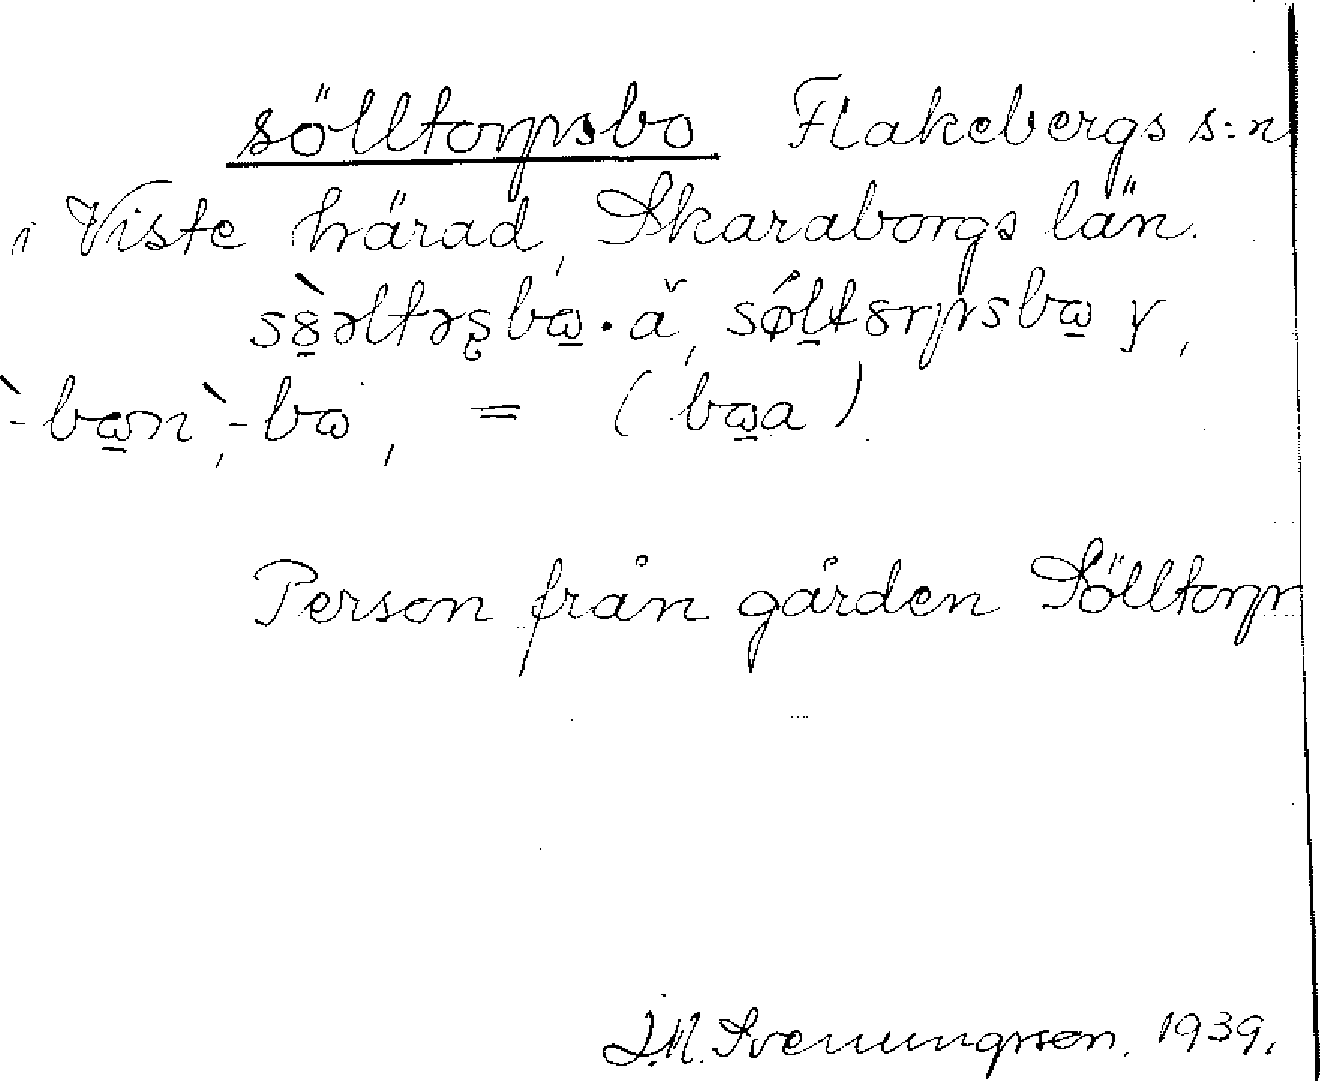 sölltorpsbo Flakebergs s:n
i Viste härad, Skaraborgs län.
sò̱əltəʂbɷ̱. ă, sǿḻtɞrpsbɷ̱ y,
`-bɷ̱n, `-bɷ, = (bɷ̱a).
Person från gården Sölltorp
J.M. Svenungsson. 1939.